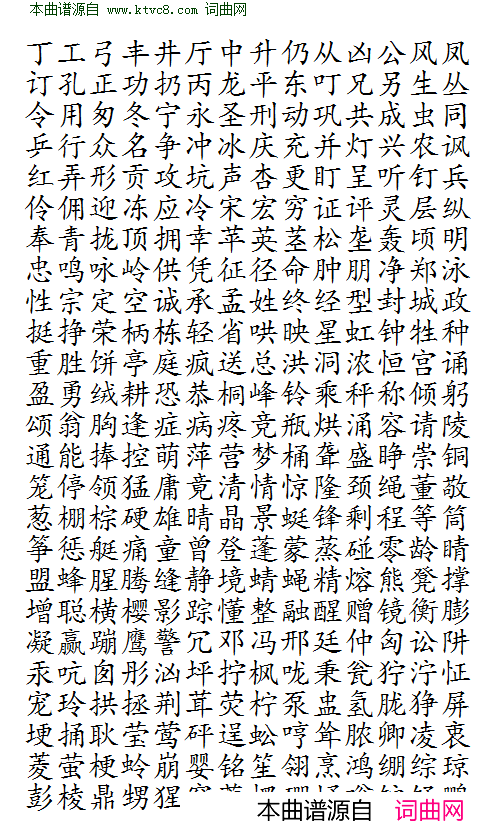 本曲谱源自
www.ktvc8.com 词曲网
丁工弓丰井厅中升仍从凶公风凤
订孔正功扔丙龙平东叮兄另生丛
令用匆冬宁永圣刑动巩共成虫同
乒行众名争冲冰庆充并灯兴农讽
红弄形贡攻坑声杏更盯呈听钉兵
伶佣迎冻应冷宋宏穷证评灵层纵
奉青拢顶拥幸苹英茎松垄轰顷明
忠鸣咏岭供凭征径命肿朋净郑泳
性宗定空诚承孟姓终经型封城政
挺挣荣柄栋轻省哄映星虹钟牲种
重胜饼亭庭疯送总洪洞浓恒宫诵
盈勇绒耕恐恭桐峰铃乘秤称倾躬
颂翁胸逢症病疼竞瓶烘涌容请陵
通能捧控萌萍营梦桶聋盛睁崇铜
笼停领猛庸竟清情惊隆颈绳董敬
葱棚棕硬雄晴晶景蜓锋剩程等筒
筝惩艇痛童曾登蓬蒙蒸碰零龄睛
盟蜂腥腾缝静境蜻蝇精熔熊凳撑
增聪横樱影踪懂整融醒赠镜衡膨
凝赢蹦鹰警冗邓冯邢廷仲匈讼阱
汞吭囱彤汹坪拧枫咙秉瓮狞泞怔
宠玲拱拯荆茸荧柠泵盅氢胧狰屏
埂捅耿莹莺砰逞蚣哼耸脓卿凌衷
菱萤梗蛉崩婴铭笙翎烹鸿绷综琼
彭棱鼎甥猩
本曲谱源自 词曲网